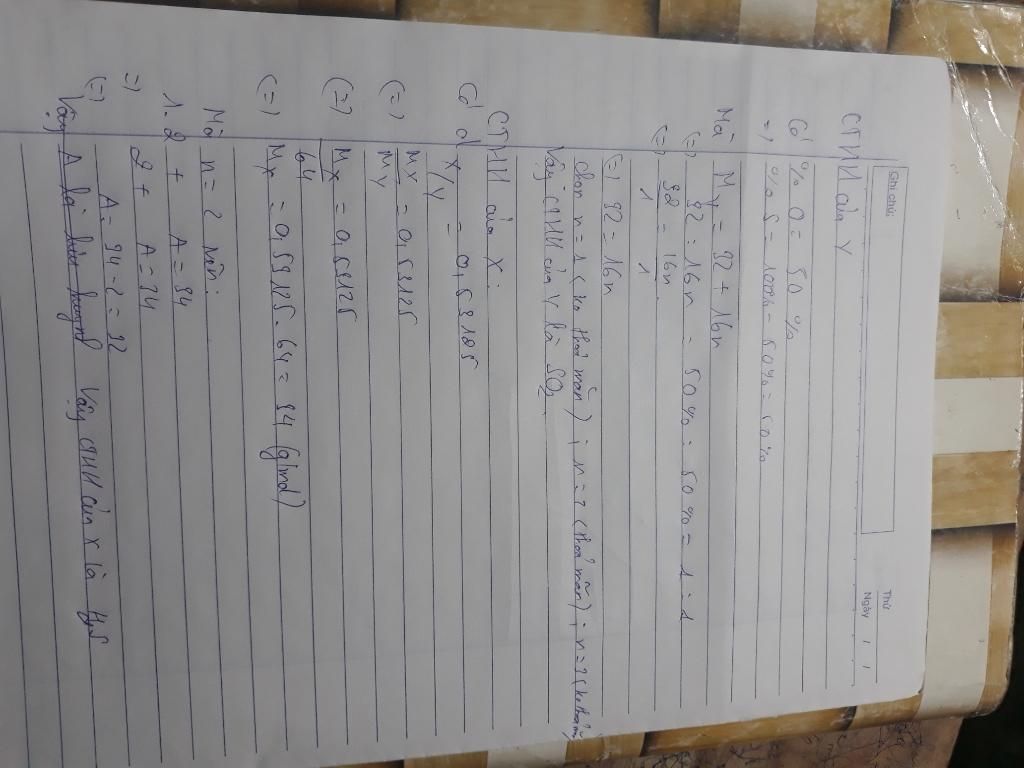 Ghi chú:
Thứ
Ngày / /
CTHH của Y
Có %O = 50%
=) %S = 100% - 50% = 50%
Mà My = 32 + 16n
(=) 32 : 16n = 50% : 50% = 1 : 1
(=) 32/1 = 16n/1
(=) 32 = 16n
chọn n = 1 (ko thoả mãn) ; n = 2 (thoả mãn) ; n = 3 (ko thoả
Vậy CTHH của Y là SO2
CTHH của X :
Có d X/Y = 0,53125
(=) Mx/My = 0,53125
(=) Mx/64 = 0,53125
(=) Mx = 0,53125 . 64 = 34 (g/mol)
Mà n = 2 nên :
1.2 + A = 34
=) 2 + A = 34
(=) A = 34 - 2 = 32
Vậy A là lưu huỳnh Vậy CTHH của X là H2S